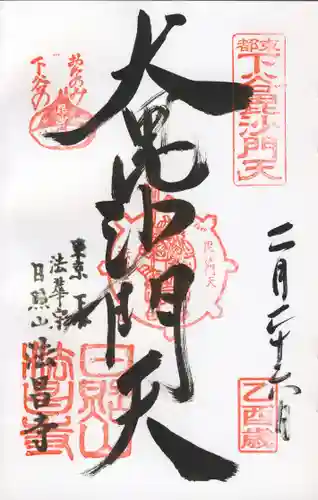 東都
下谷毘沙門天
二月二十六日
乙酉歳
大毘沙門天
毘沙門天
下谷の
東京 下谷
法華宗
日照山 法昌寺
日照山
法昌寺